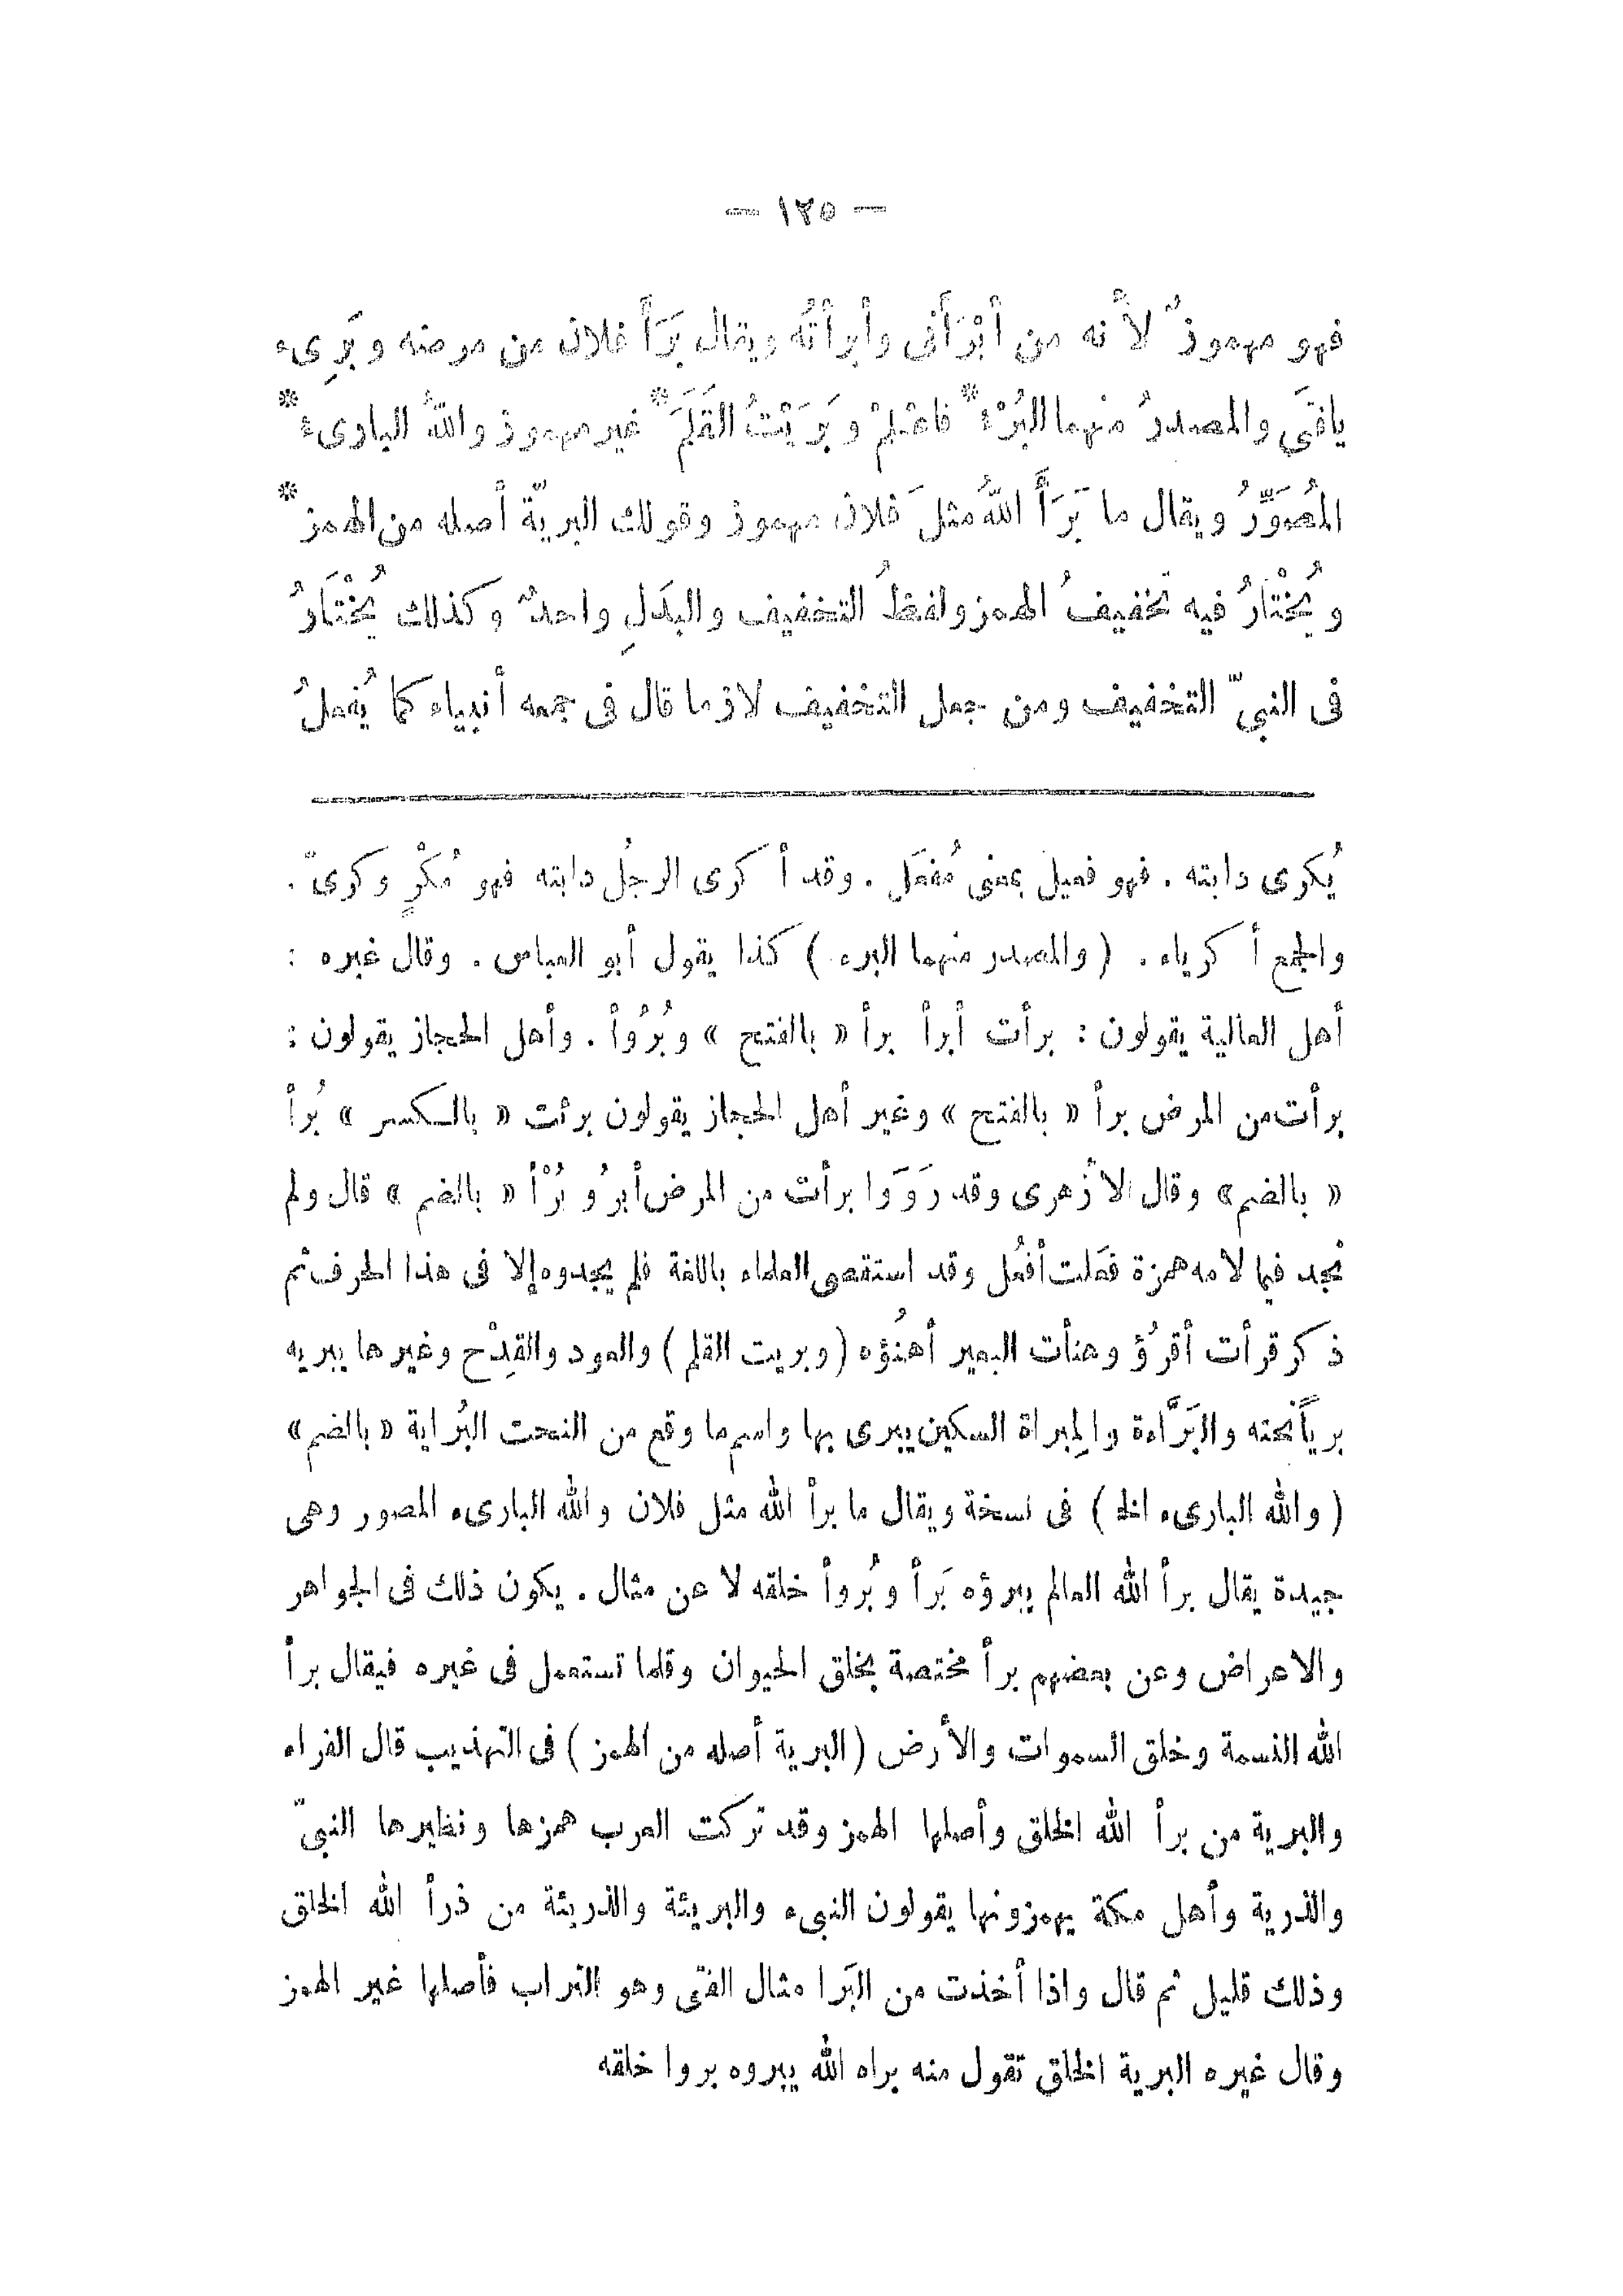 — ١٢٥ —
فهو مهموزٌ لأنه من أبْرَأَنى وأبرأتُه ويقال بَرَأَ فلان من مرضه وبَرِىء
يافتَى والمصدرُ منهما البُرْءُ * فاعْلمْ وبَرَيْتُ القَلَمَ * غير مهموز واللهُ البارىءُ *
المُصَوِّرُ ويقال ما بَرَأَ اللهُ مثلَ فلان مهموز وقولك البريّة أصله من الهمز *
ويُخْتَارُ فيه تخفيفُ الهمز ولفظُ التخفيف والبدَلِ واحدٌ وكذلك يُخْتَارُ
فى النبىّ التخفيف ومن جعل التخفيف لازما قال فى جمعه أنبياء كما يُفعلُ
يُكرى دابته . فهو فعيل بمعنى مُفعَل . وقد أكرى الرجلُ دابته فهو مُكْرٍ وكرىّ .
والجمع أكرياء . ( والمصدر منهما البرء ) كذا يقول أبو العباس . وقال غيره :
أهل العالية يقولون : برأت أبرأ برأ « بالفتح » وبُرُوأ . وأهل الحجاز يقولون :
برأت من المرض برأ « بالفتح » وغير أهل الحجاز يقولون برئت « بالكسر » بُرأ
« بالضم » وقال الأزهرى وقد رَوَوا برأت من المرض أبرُو بُرْأ « بالضم » قال ولم
نجد فيما لامه همزة فعَلت أفعُل وقد استقصى العلماء باللغة فلم يجدوه إلا فى هذا الحرف ثم
ذكر قرأت أقرُؤ وهنأت البعير أهنُؤه ( وبريت القلم ) والعود والقِدْح وغيرها يبريه
برياً نحته والبَرَّاءة والمِبراة السكين يبرى بها واسم ما وقع من النحت البُراية « بالضم »
( والله البارىء الخ ) فى نسخة ويقال ما برأ الله مثل فلان والله البارىء المصور وهى
جيدة يقال برأ الله العالم يبرؤه بَرأ وبُروأ خلقه لا عن مثال . يكون ذلك فى الجواهر
والاعراض وعن بعضهم برأ مختصة بخلق الحيوان وقلما تستعمل فى غيره فيقال برأ
الله النسمة وخلق السموات والأرض ( البرية أصله من الهمز ) فى التهذيب قال الفراء
والبرية من برأ الله الخلق وأصلها الهمز وقد تركت العرب همزها ونظيرها النبىّ
والذرية وأهل مكة يهمزونها يقولون النبىء والبريئة والذريئة من ذرأ الله الخلق
وذلك قليل ثم قال واذا أخذت من البَرا مثال الفتى وهو التراب فأصلها غير الهمز
وقال غيره البرية الخلق تقول منه براه الله يبروه بروا خلقه